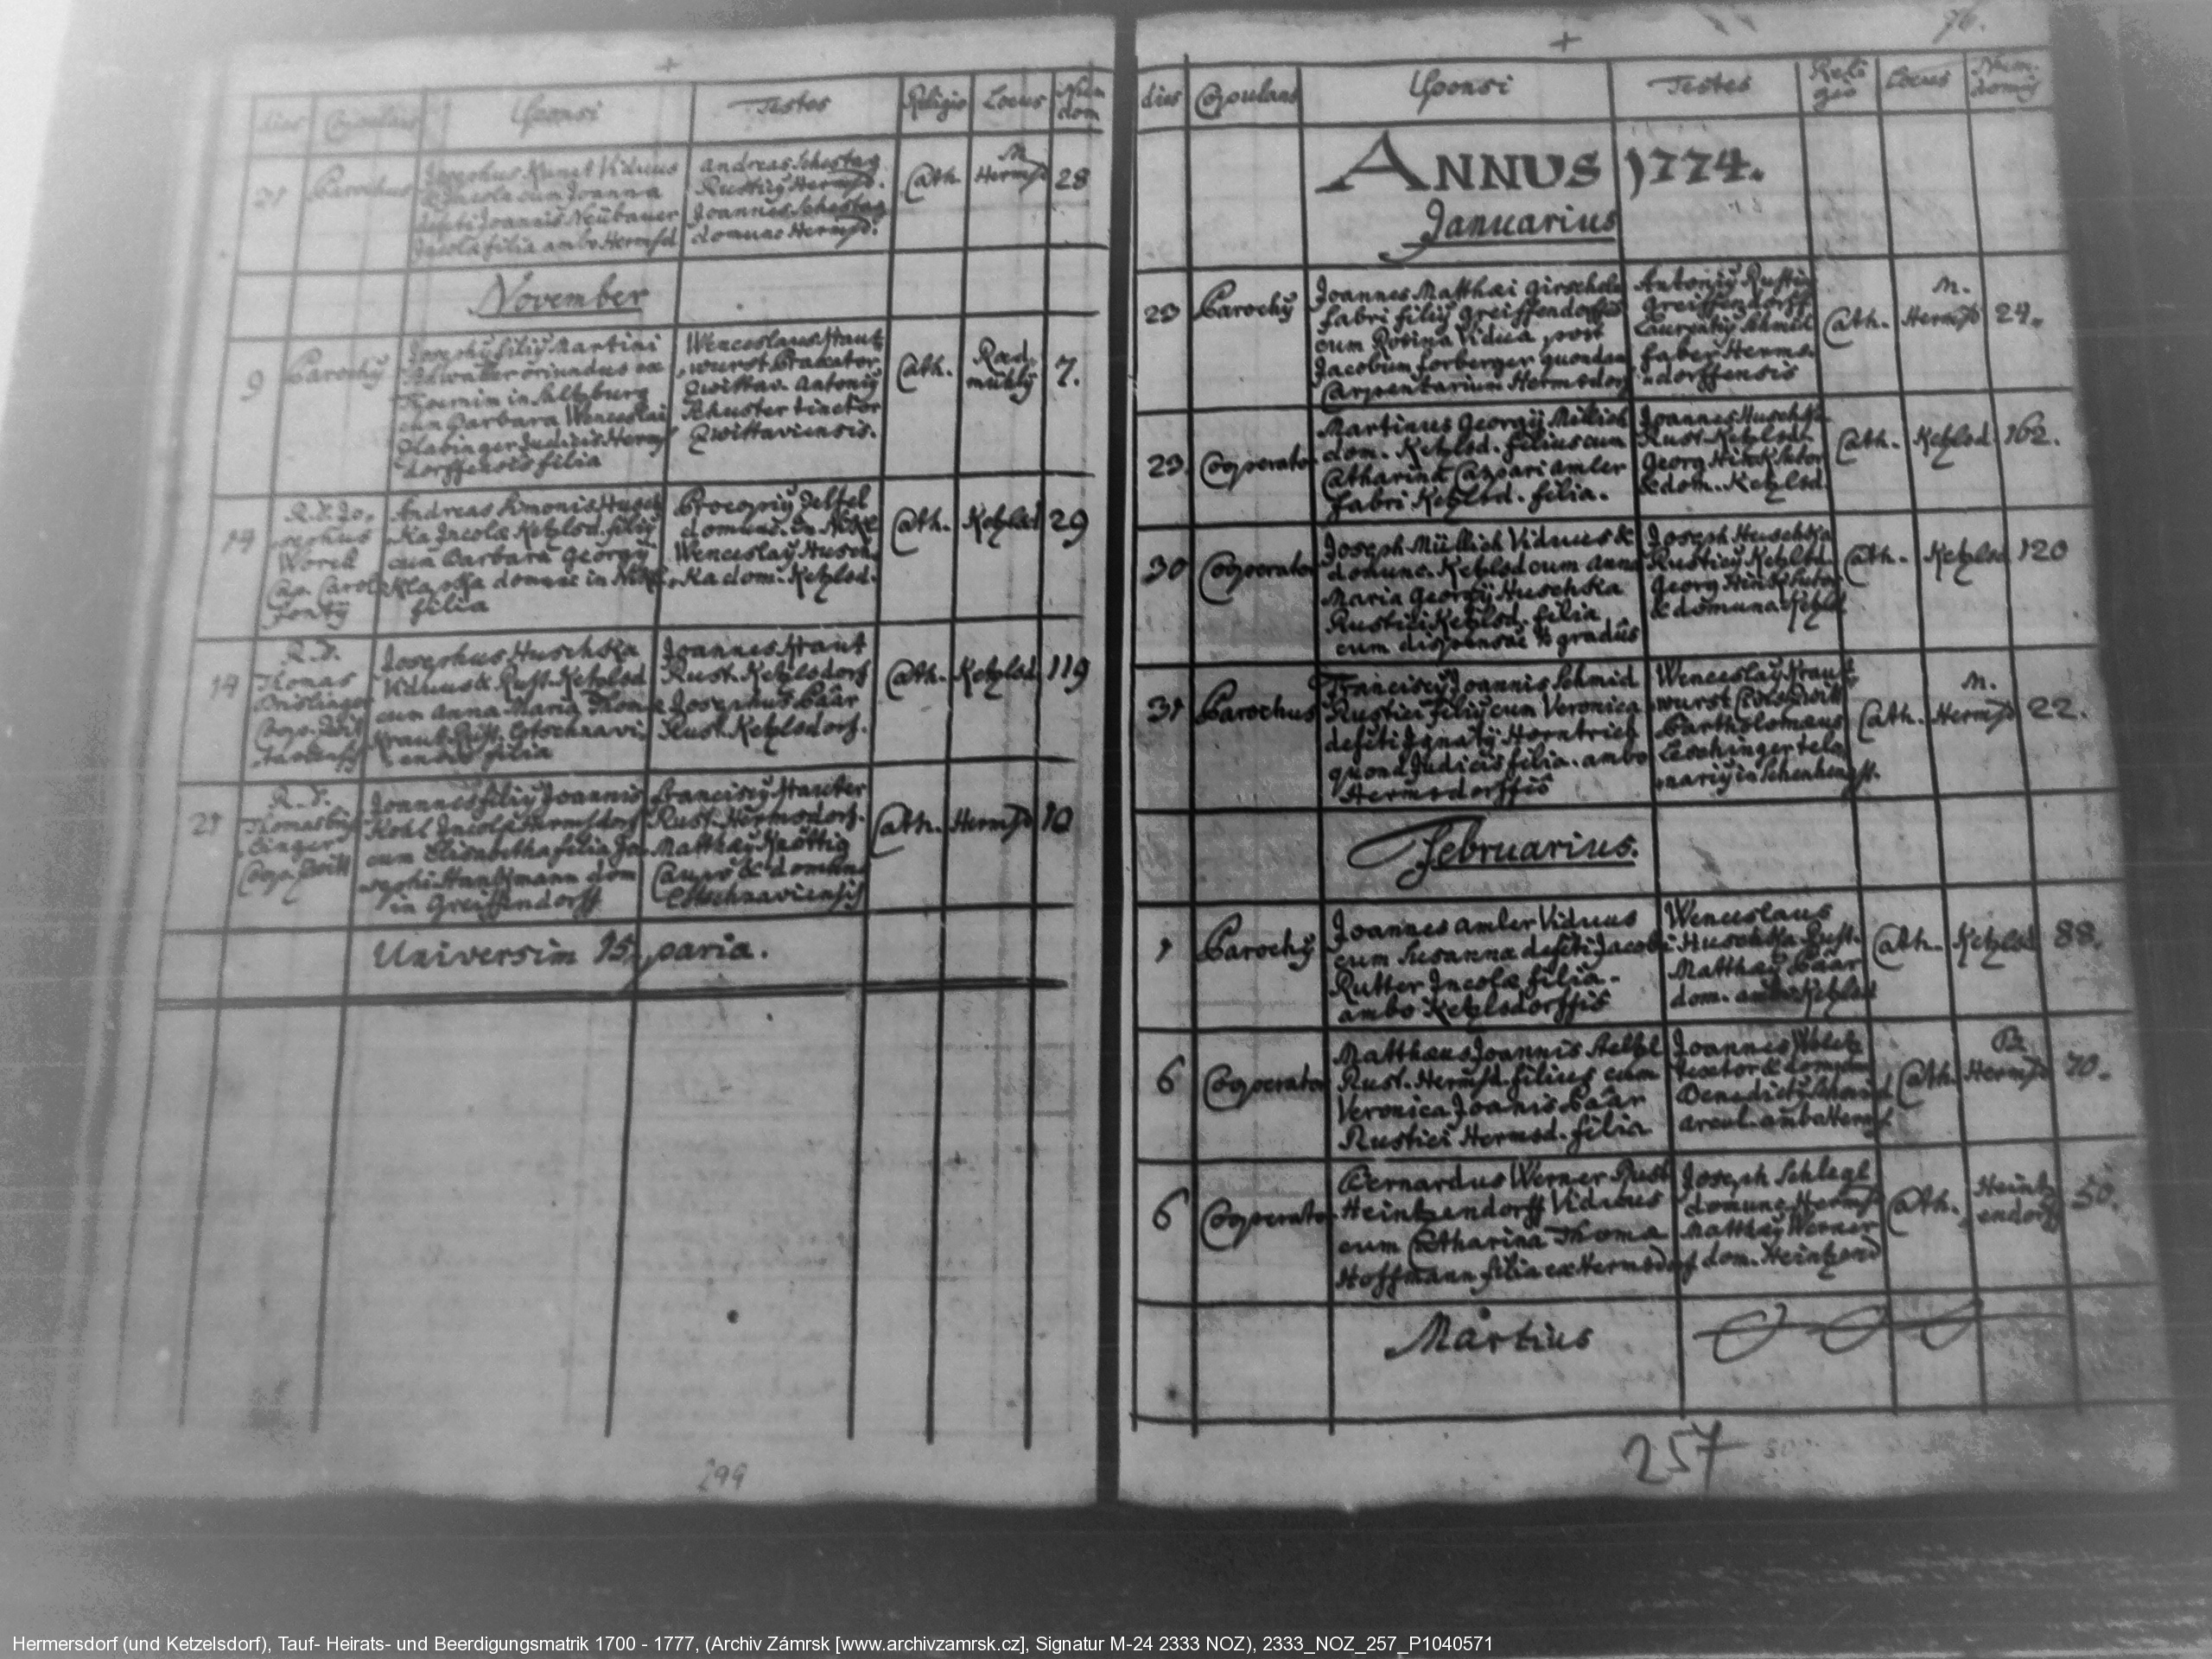 dies Copulans Sponsi Testes Religio Locus Num dom
21 Parochus
Josephus Kunet Viduus
& Incola cum Joanna
defuti Joannis Neübauer
Incolæ filia ambo Hermsd
Andreas Schestag
Rusticy Hermsd.
Joannes Schestag
domunc Hermsd.
Cath. M. Hermsd 28
November
9 Parochy
Josephy filiy Martini
oriundus ex
in Saltzburg
cum Barbara Wenceslai
Habinger Judicis Herms
dorffensis filia
Wenceslaus Kraut
wurst
Zwittav. Antoniy
Schuster tinctor
Zwittaviensis.
Cath. Rad mühly 7.
19
R.D. Jo,
sephus
Worel
Cap. Carol
fonty
Andreas Simonis Husch
,Ka Incolæ Ketzlsd. filiy
cum Barbara Georgy
Klapka domunc in Nikl
filia
Procopiy Jelfel
domunc. in Nikl
Wenceslay Husch,
,Ka dom. Ketzlsd.
Cath. Ketzlsd 29
19
R.D.
Thomas
Brislinger
Coop. Zwit
Josephus Huschka
Viduus & Rust. Ketzlsd
cum Anna Maria Thomæ
Kraut Rust. Lotschnavi,
ensis filia
Joannes Kraut
Rust. Ketzlsdorf
Josephus Baar
Rust. Ketzlsdorf.
Cath. Ketzlsd 119
21
R.D.
Thomas Bris
,linger
Coop. Zwitt
Joannes filiy Joannis
Kohl Incolæ Hermsdorf
cum Elisabetha filia Jo,
,sephi Hantzmann dom
in Greiffendorff
Franciscy Hautter
Rust. Hermsdorf.
Matthæy Knöttig
& domunc
Lotschnaviensis
Cath. Hermsd 10
Universim 15 paria.
299
76.
dies Copulans Sponsi Testes Reli gio Locus Num. domy
ANNUS 1774.
Januarius
23 Parochy
Joannes Matthæi Girschele
fabri filiy Greiffendorffij
cum Rosina Vidua post
Jacobum Forberger quondam
Carpentarium Hermsdorf
Antoniy Rustiy
Greiffendorff
Laurentiy Schmid
faber Herms,
,dorffensis
Cath. M. Hermsd 24.
23. Cooperator
Martinus Georgij Müllich
dom. Ketzlsd. filius cum
Catharina Caspari Amler
fabri Ketzlsd. filia.
Joannes Huschka
Rust. Ketzlsd.
Georg Hink Sutor
& dom. Ketzlsd.
Cath. Ketzlsd 162.
30 Cooperator
Joseph Müllich Viduus &
domunc. Ketzlsd cum Anna
Maria Georgy Huschka
Rustici Ketzlsd. filia
cum dispensae gradûs
Joseph Huschka
Rusticy Ketzlsd
Georg Hink Sutor
& domunc Ketzlsd
Cath. Ketzlsd 120
31 Parochus
Franciscy Joannis Schmid
Rustici filiy cum Veronica
defuti Ignatij Horntrich
quond Judicis filia. ambo
Hermsdorffis
Wenceslay Kraut
,wurst
Bartholomæus
Leschinger tela
,nariy in Schenhengst.
Cath. M. Hermsd 22.
Februarius.
1 Parochy
Joannes Amler Viduus
cum Susanna defuti Jacobi
Rutter Incolæ filia.
ambo Ketzlsdorffis
Wenceslaus
Huschka Rust.
Matthæy Baar
dom. ambo Ketzlsd
Cath. Ketzlsd 88.
6 Cooperator
Matthæus Joannis Aeltzl
Rust. Hermsd. filius cum
Veronica Joanis Baar
Rustici Hermsd. filia
Joannes
textor & domunc
Benedicty Schmid
arcul. ambo Herms.
Cath. Hermsd 70.
6 Cooperator
Bernardus Werner Rust
Heintzendorff Viduus
cum Catharina Thoma
Hoffmann filia ex Hermsdorf
Joseph Schlegl
domunc Hermsd
Matthæy Werner
dom. Heintzend
Cath. Heintz endorf 50.
Martius
257
Hermersdorf (und Ketzelsdorf), Tauf- Heirats- und Beerdigungsmatrik 1700 - 1777, (Archiv Zámrsk [www.archivzamrsk.cz], Signatur M-24 2333 NOZ), 2333_NOZ_257_P1040571